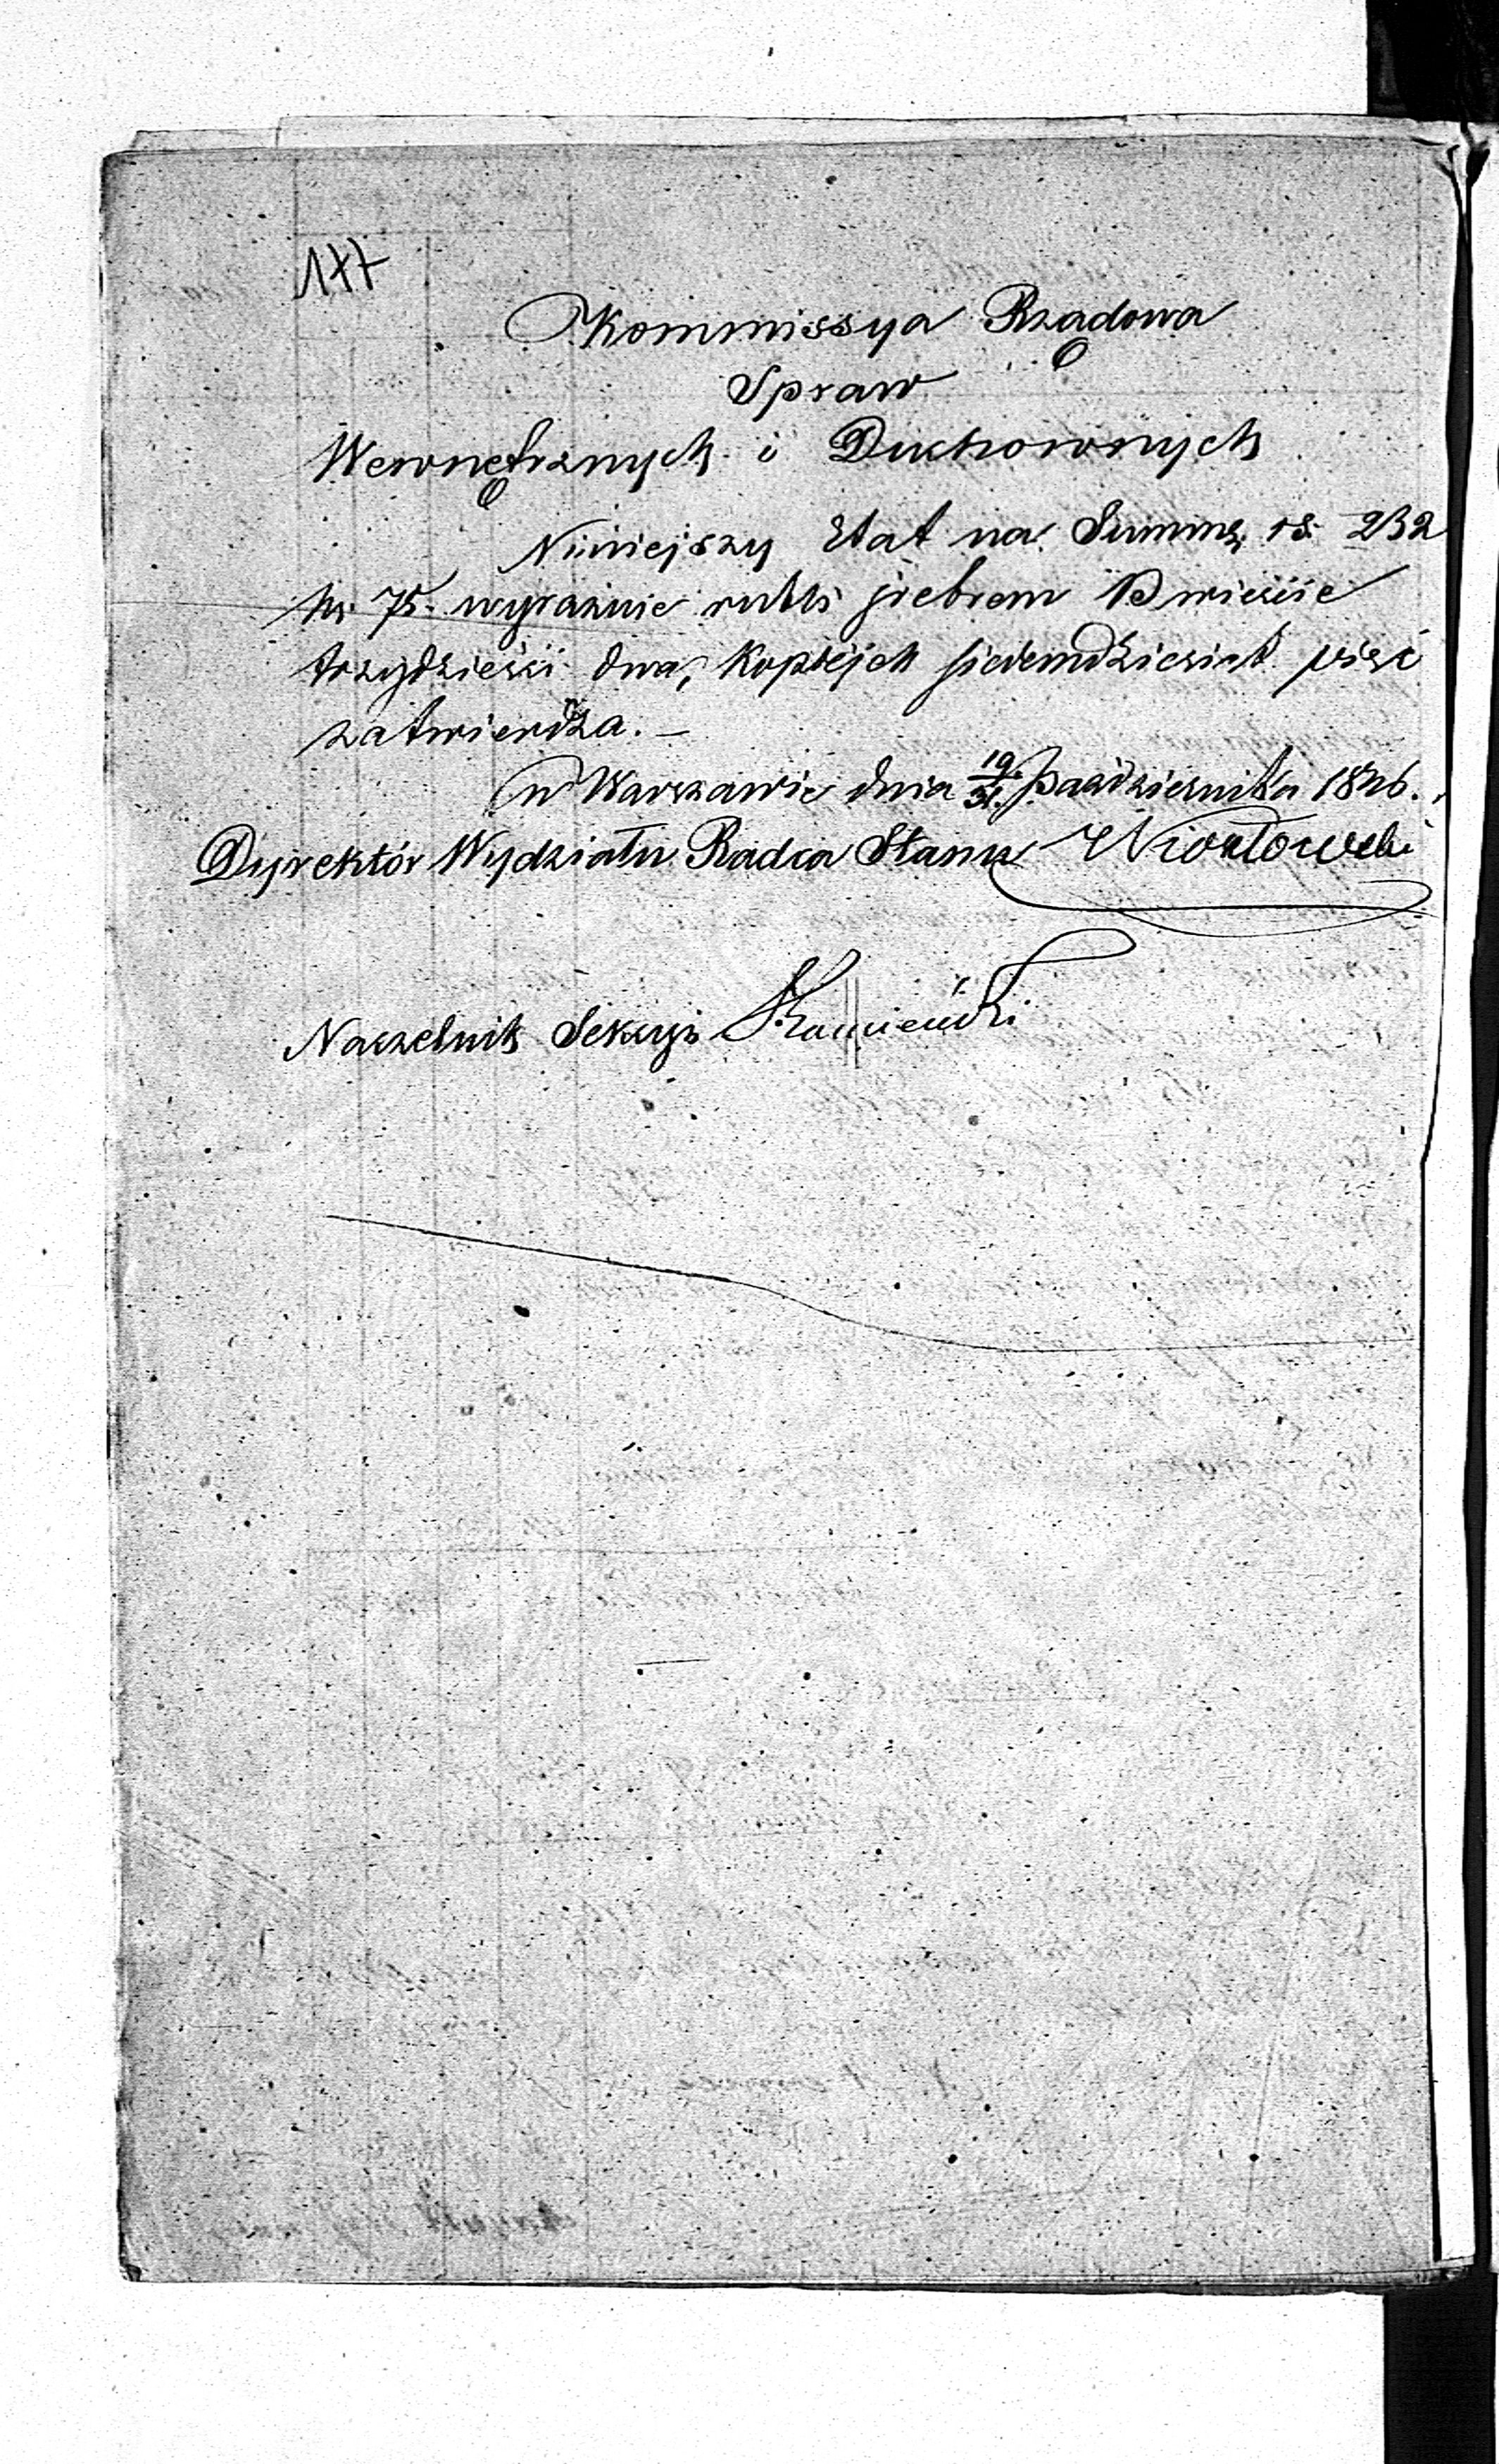 177
Kommissya Rządowa
Spraw
Wewnętrznych i Duchownych
Niniejszy Etat na Summę rs. 232
k. 75. wyraźnie rubli srebrem Dwieście
trzydzieści dwa, kopiejek siedmdziesiąt pięć
zatwierdza. —
w Warszawie dnia 19/31. Października 1846.
Dyrektór Wydziału Radca Stanu
Naczelnik Sekcyi Kamieński